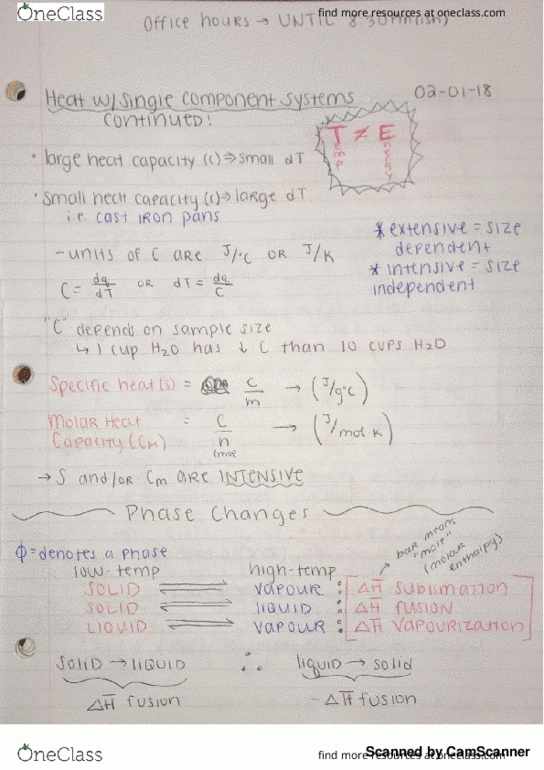 OneClass
find more resources at oneclass.com
Office hours → UNTIL 8:30PM(ish)
Heat w/ Single component systems
continued:
02-01-18
T ≠ E
Temp Energy
• large heat capacity (c) ⇒ small dT
• Small heat capacity (c) ⇒ large dT
i.e. cast iron pans
- units of C are J/°C OR J/K
C = dq/dT OR dT = dq/C
* extensive = size
dependent
* intensive = size
independent
"C" depends on sample size
↳ 1 cup H2O has ↓ C than 10 cups H2O
Specific heat (s) = C/m → (J/g°C)
Molar Heat
Capacity (CM) = C/n → (J/mol·K)
(mol
→ S and/or Cm are INTENSIVE
Phase Changes
Φ = denotes a phase
bar means
"mole"
(molar
enthalpy)
low-temp high-temp
SOLID ⇌ VAPOUR : ΔH̅ SUBLIMATION
SOLID ⇌ LIQUID : ΔH̅ FUSION
LIQUID ⇌ VAPOUR : ΔH̅ VAPOURIZATION
SOLID → LIQUID ∴ liquid → solid
ΔH̅ fusion - ΔH̅ fusion
OneClass
find more resources at oneclass.com
Scanned by CamScanner